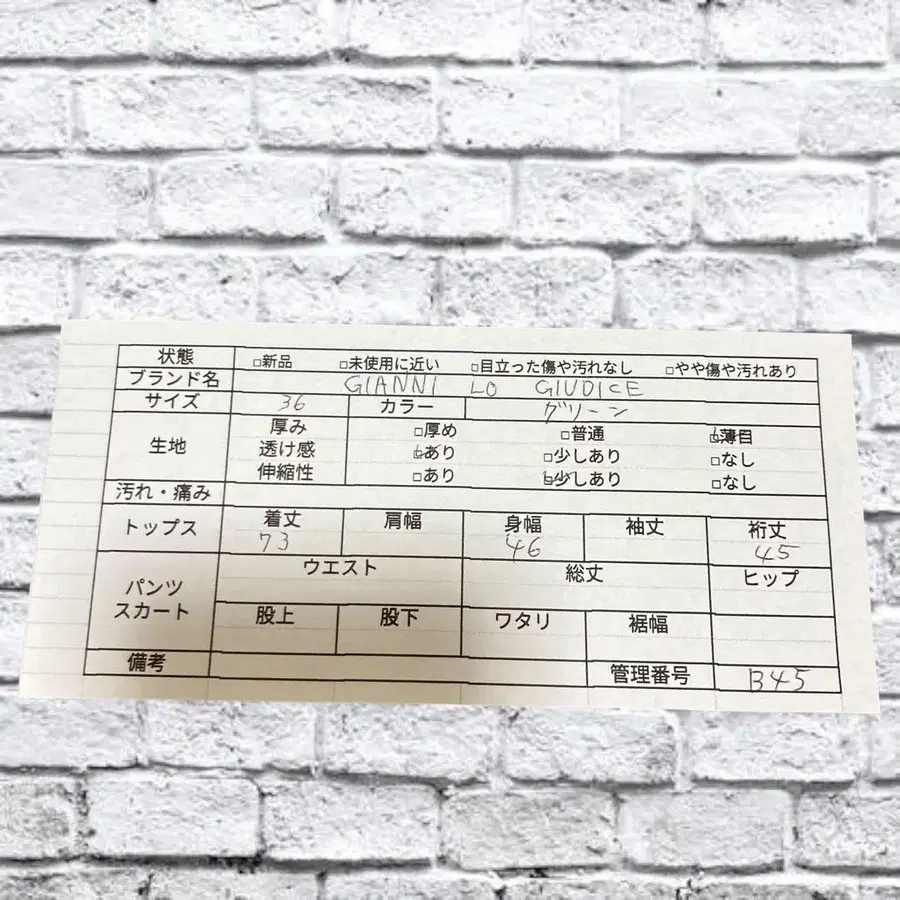 状態 □新品 □未使用に近い □目立った傷や汚れなし □やや傷や汚れあり
ブランド名 GIANNI LO GIUDICE
サイズ 36 カラー グリーン
生地 厚み □厚め □普通 ☑薄目
透け感 ☑あり □少しあり □なし
伸縮性 □あり ☑少しあり □なし
汚れ・痛み
トップス 着丈 肩幅 身幅 袖丈 裄丈
73 46 45
パンツ スカート ウエスト 総丈 ヒップ
股上 股下 ワタリ 裾幅
備考 管理番号 B45